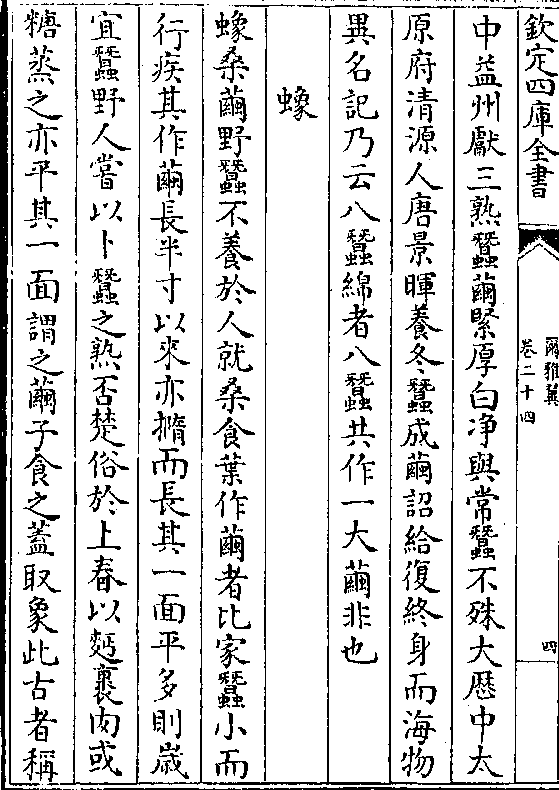 欽定四庫全書
爾雅翼
卷二十四
四
中益州獻三熟蠶繭緊厚白净與常蠶不殊大歴中太
原府清源人唐景暉養冬蠶成繭詔給復終身而海物
異名記乃云八蠶綿者八蠶共作一大繭非也
蟓
蟓桑繭野蠶不養於人就桑食葉作繭者比家蠶小而
行疾其作繭長半寸以來亦橢而長其一面平多則嵗
宜蠶野人嘗以卜蠶之熟否楚俗於上春以麫裹肉或
糖蒸之亦平其一面謂之繭子食之蓋取象此古者稱